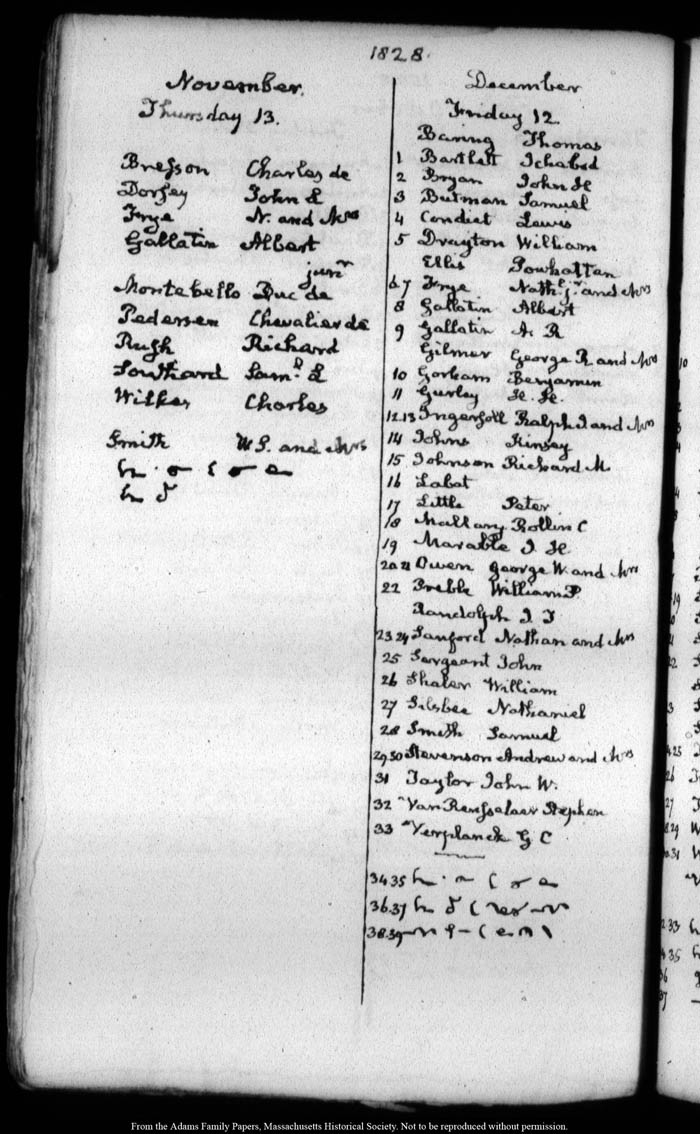 1828.
November.
Thursday 13.
Bresson Charles de
Dorsey John L
Frye N. and Mrs
Gallatin Albert
junr
Montebello Duc de
Pedersen Chevalier de
Rush Richard
Southard Saml L
Wilkes Charles
Smith W. S. and Mrs
December
Friday 12
Baring Thomas
1 Bartlett Ichabod
2 Bryan John H
3 Butman Samuel
4 Condict Lewis
5 Drayton William
Ellis Powhattan
6.7 Frye Nathl jr and Mrs
8 Gallatin Albert
9 Gallatin A. R
Gilmer George R. and Mrs
10 Gorham Benjamin
11 Gurley H. H.
12.13 Ingersoll Ralph I and Mrs
14 Johns Kinsey
15 Johnson Richard M.
16 Labat
17 Little Peter
18 Mallary Rollin C
19 Marable J. H.
20 21 Owen George W. and Mrs
22 Preble William P.
Randolph I. T
23 24 Sanford Nathan and Mrs
25 Sergeant John
26 Shaler William
27 Silsbee Nathaniel
28 Smith Samuel
29.30 Stevenson Andrew and Mrs
31 Taylor John W.
32 Van Rensselaer Stephen
33 Verplanck G C
34 35
36.37
38.39
From the Adams Family Papers, Massachusetts Historical Society. Not to be reproduced without permission.